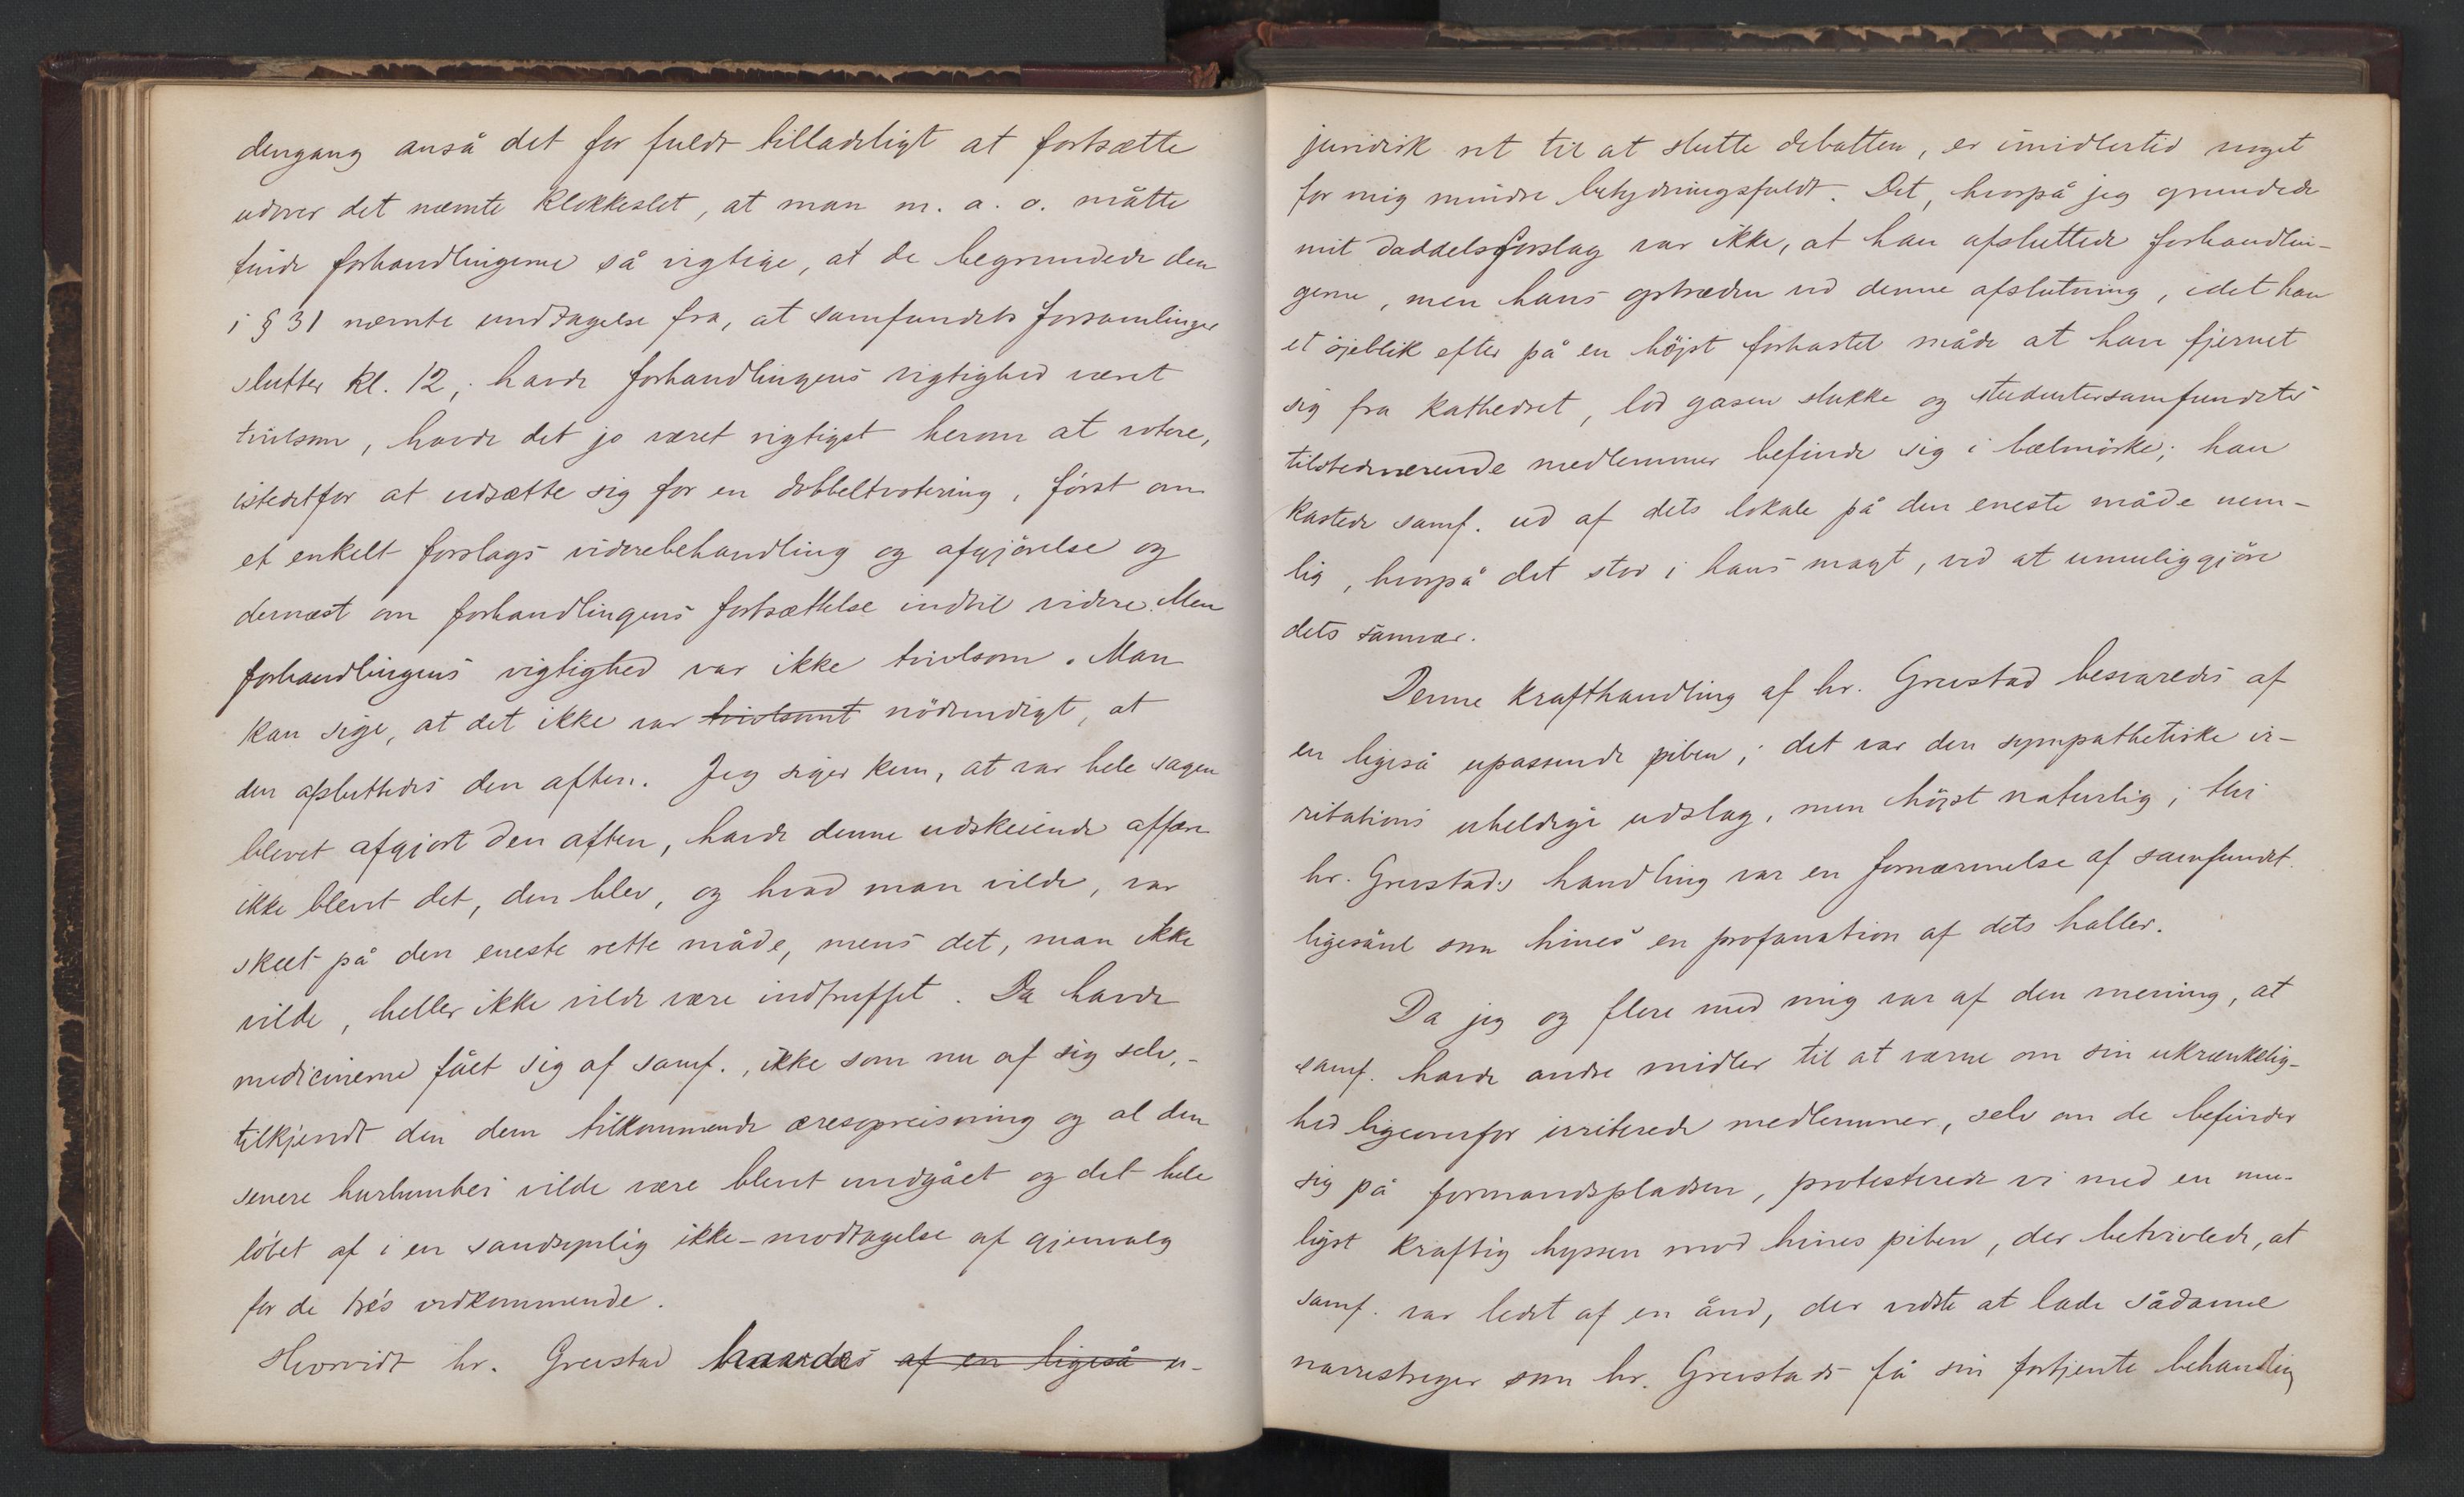 dengang anså det for fuldt tilladeligt at fortsætte
udover det nævnte klokkeslet, at man m. a. o. måtte
finde forhandlingerne så vigtige, at de begrundede den
i § 31 nævnte undtagelse fra, at samfundets forsamlinger
slutter kl. 12; havde forhandlingens vigtighed været
tvilsom, havde det jo været rigtigst herom at votere,
istedetfor at udsætte sig for en dobbeltvotering, först om
et enkelt forslags viderebehandling og afgjörelse og
dernæst om forhandlingens fortsættelse indtil videre. Men
forhandlingens vigtighed var ikke tvilsom. Man
kan sige, at det ikke var tvivlsomt nödvendigt, at
den afsluttedes den aften. Jeg siger kun, at var hele sagen
blevet afgjort den aften, havde denne udskeiende affære
ikke blevet det, den blev, og hvad man vilde, var
skeet på den eneste rette måde, mens det, man ikke
vilde, heller ikke vilde være indtruffet. Da havde
medicinerne fået sig af samf., ikke som nu af sig selv,-
tilkjendt den dem tilkommende æresopreisning og al den
senere hurlumhei vilde være blevet undgået og det hele
löbet af i en sandsynlig ikke-modtagelse af gjenvalg
for de tre's vedkommende.
Hvorvidt hr. Grevstad havde af en ligeså u-
juridisk ret til at slutte debatten, er imidlertid noget
for mig mindre betydningsfuldt. Det, hvorpå jeg grundede
mit daddelsforslag var ikke, at han afsluttede forhandlin-
gerne, men hans optræden ved denne afslutning, idet han
et öjeblik efter på en höjst forhastet måde at have fjernet
sig fra kathedret, lod gasen slukke og studentersamfundets
tilstedeværende medlemmer befinde sig i bælmörke; han
kastede samf. ud af dets lokale på den eneste måde nem-
lig, hvorpå det stod i hans magt, ved at umuliggjöre
dets samvær.
Denne krafthandling af hr. Grevstad besvaredes af
en ligeså upassende piben; det var den sympathetiske ir-
ritations uheldige udslag, men höjst naturlig; thi
hr. Grevstads handling var en fornærmelse af samfundet
ligesåvel som hines en profanation af dets haller.
Da jeg og flere med mig var af den mening, at
samf. havde andre midler til at værne om sin ukrænkelig-
hed ligeoverfor irriterede medlemmer, selv om de befinder
sig på formandspladsen, protesterede vi med en mu-
ligst kraftig hyssen mod hines piben, der betvivlede, at
samf. var ledet af en ånd, der vidste at lade sådanne
narrestreger som hr. Grevstads få sin fortjente behandling